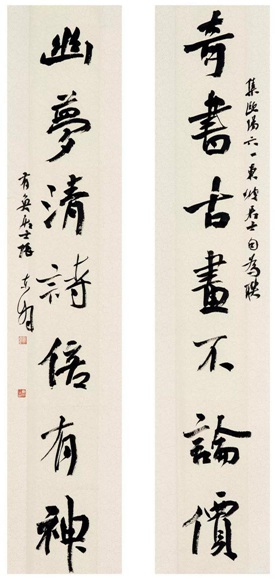 集歐陽六一東坡居士句為聯
奇書古畫不論價
幽夢清詩信有神
居士